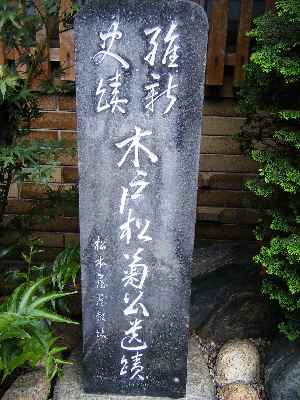 維新
史蹟
木戸松菊公遺蹟